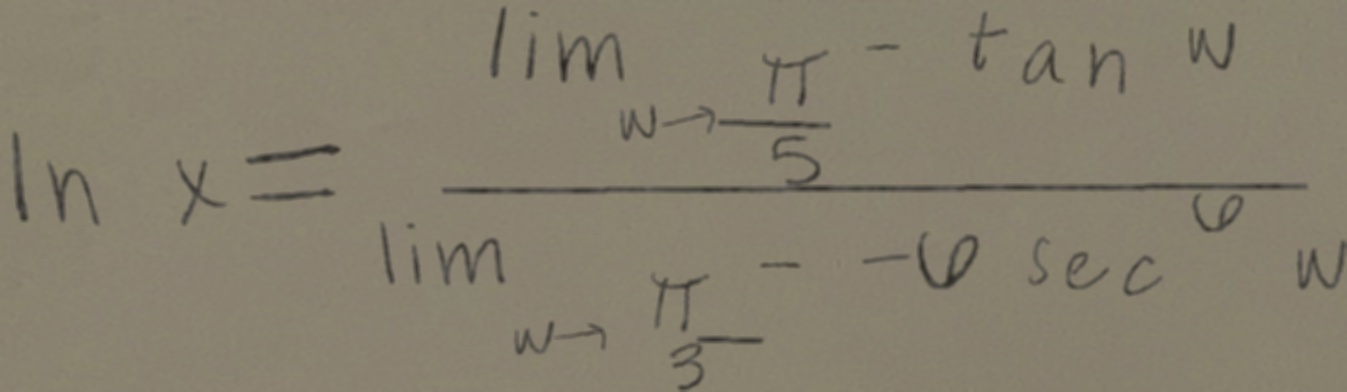 \ln x = \frac{\lim_{w \to \frac{\pi}{5}^-} \tan w}{\lim_{w \to \frac{\pi}{3}^-} -6 \sec^6 w}